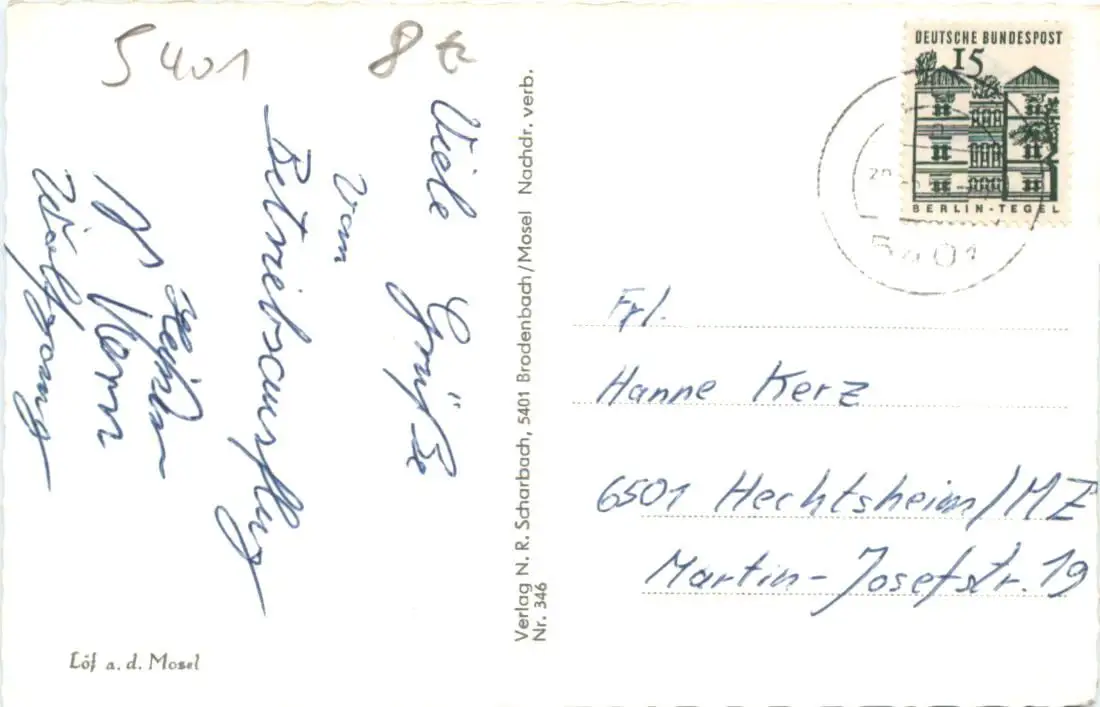 5401
8 €
Viele Grüße
vom
Betriebsausflug
H. Korn
Wolfgang
Löf a. d. Mosel
Verlag N. R. Scharbach, 5401 Brodenbach/Mosel Nachdr. verb.
Nr. 346
DEUTSCHE BUNDESPOST
15
BERLIN-TEGEL
5401
Frl.
Hanne Kerz
6501 Hechtsheim/MZ
Martin-Josefstr. 19